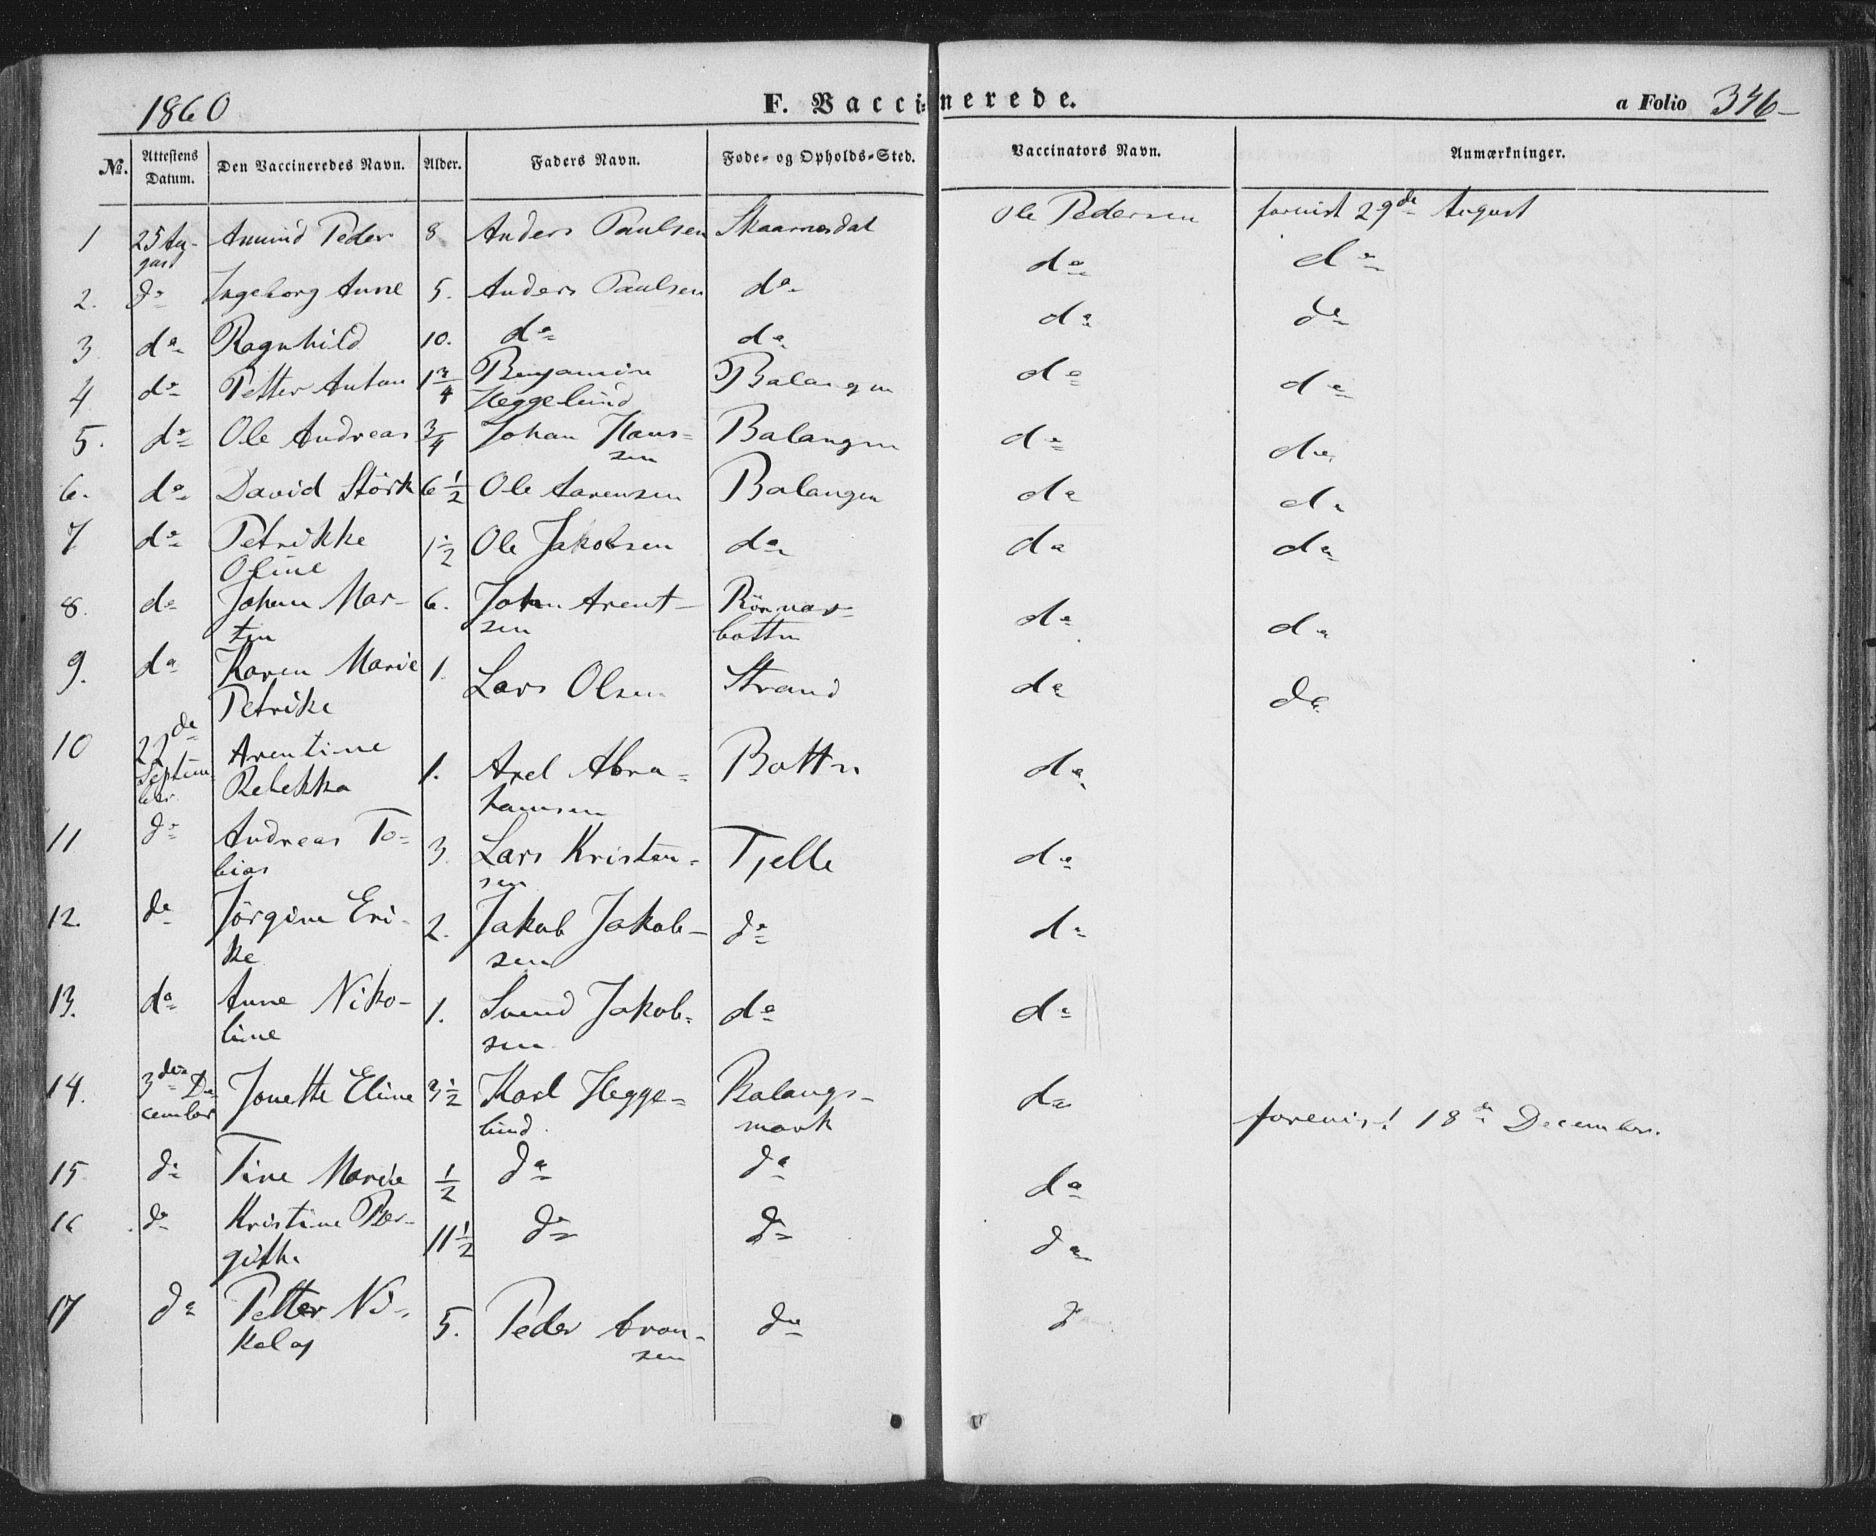 1860 F. Vaccinerede. a Folio 346
No. Attestens Datum. Den Vaccineredes Navn. Alder. Faders Navn. Føde- og Opholds-Sted. Vaccinators Navn. Anmærkninger.
1 25 August Amund Peder 8 Anders Paulsen Skaarnesdal Ole Pedersen 29de August
2. do Ingeborg Anne 5. Anders Paulsen do do do
3 do Ragnhild 10. do do do do
4 do Petter Anton 1 3/4 Benjamin Heggelund Balangen do do
5. do Ole Andreas 3/4 Johan Hansen Balangen do do
6. do David Störk 6 1/2 Ole Aarensen Balangen do do
7 do Petrikke Oline 1 1/2 Ole Jakobsen do do do
8. do Johan Martin 6. Johan Arentsen botten do do
9. do Karen Marie Petrike 1. Lars Olsen Strand do do
10 22de September Arentine Rebekka 1. Axel Abrahamsen Botten do
11 do Andreas Tobias 3. Lars Kristensen Tjelle do
12. do Jörgine Erike 2. Jakob Jakobsen do do
13. do Anne Nikoline 1. Svend Jakobsen do do
14. 3die December Jonette Eline 3 1/2 Karl Heggelund Balangsmark do forevist 18de December.
15 do Tine Marie 1/2 do do do
16 do Kristine Bergithe 11 1/2 do do do
17 do Petter Nikolai 5. Peder Aronsen do